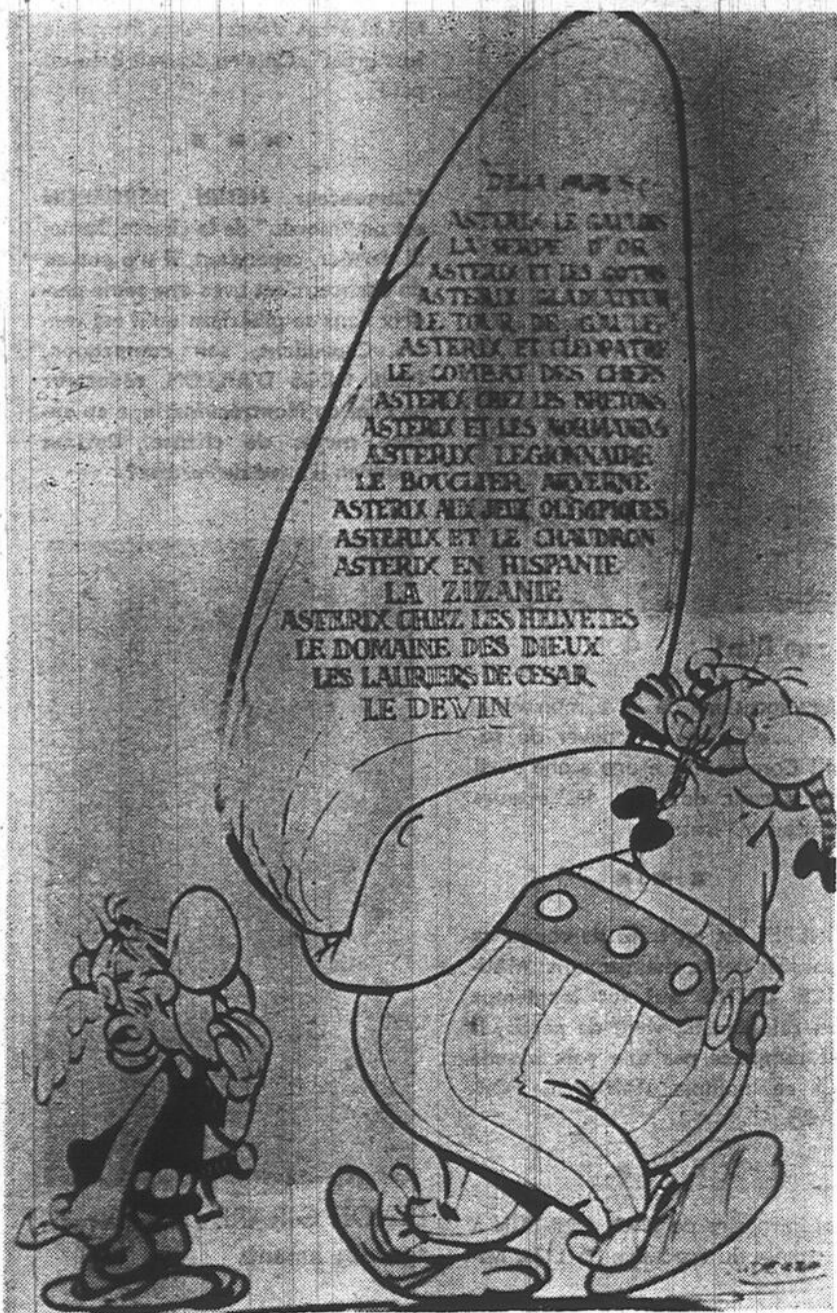 DEJA PARUS:
ASTERIX LE GAULOIS
LA SERPE D'OR
ASTERIX ET LES GOTHS
ASTERIX GLADIATEUR
LE TOUR DE GAULE
ASTERIX ET CLEOPATRE
LE COMBAT DES CHEFS
ASTERIX CHEZ LES BRETONS
ASTERIX ET LES NORMANDS
ASTERIX LEGIONNAIRE
LE BOUCLIER ARVERNE
ASTERIX AUX JEUX OLYMPIQUES
ASTERIX ET LE CHAUDRON
ASTERIX EN HISPANIE
LA ZIZANIE
ASTERIX CHEZ LES HELVETES
LE DOMAINE DES DIEUX
LES LAURIERS DE CESAR
LE DEVIN